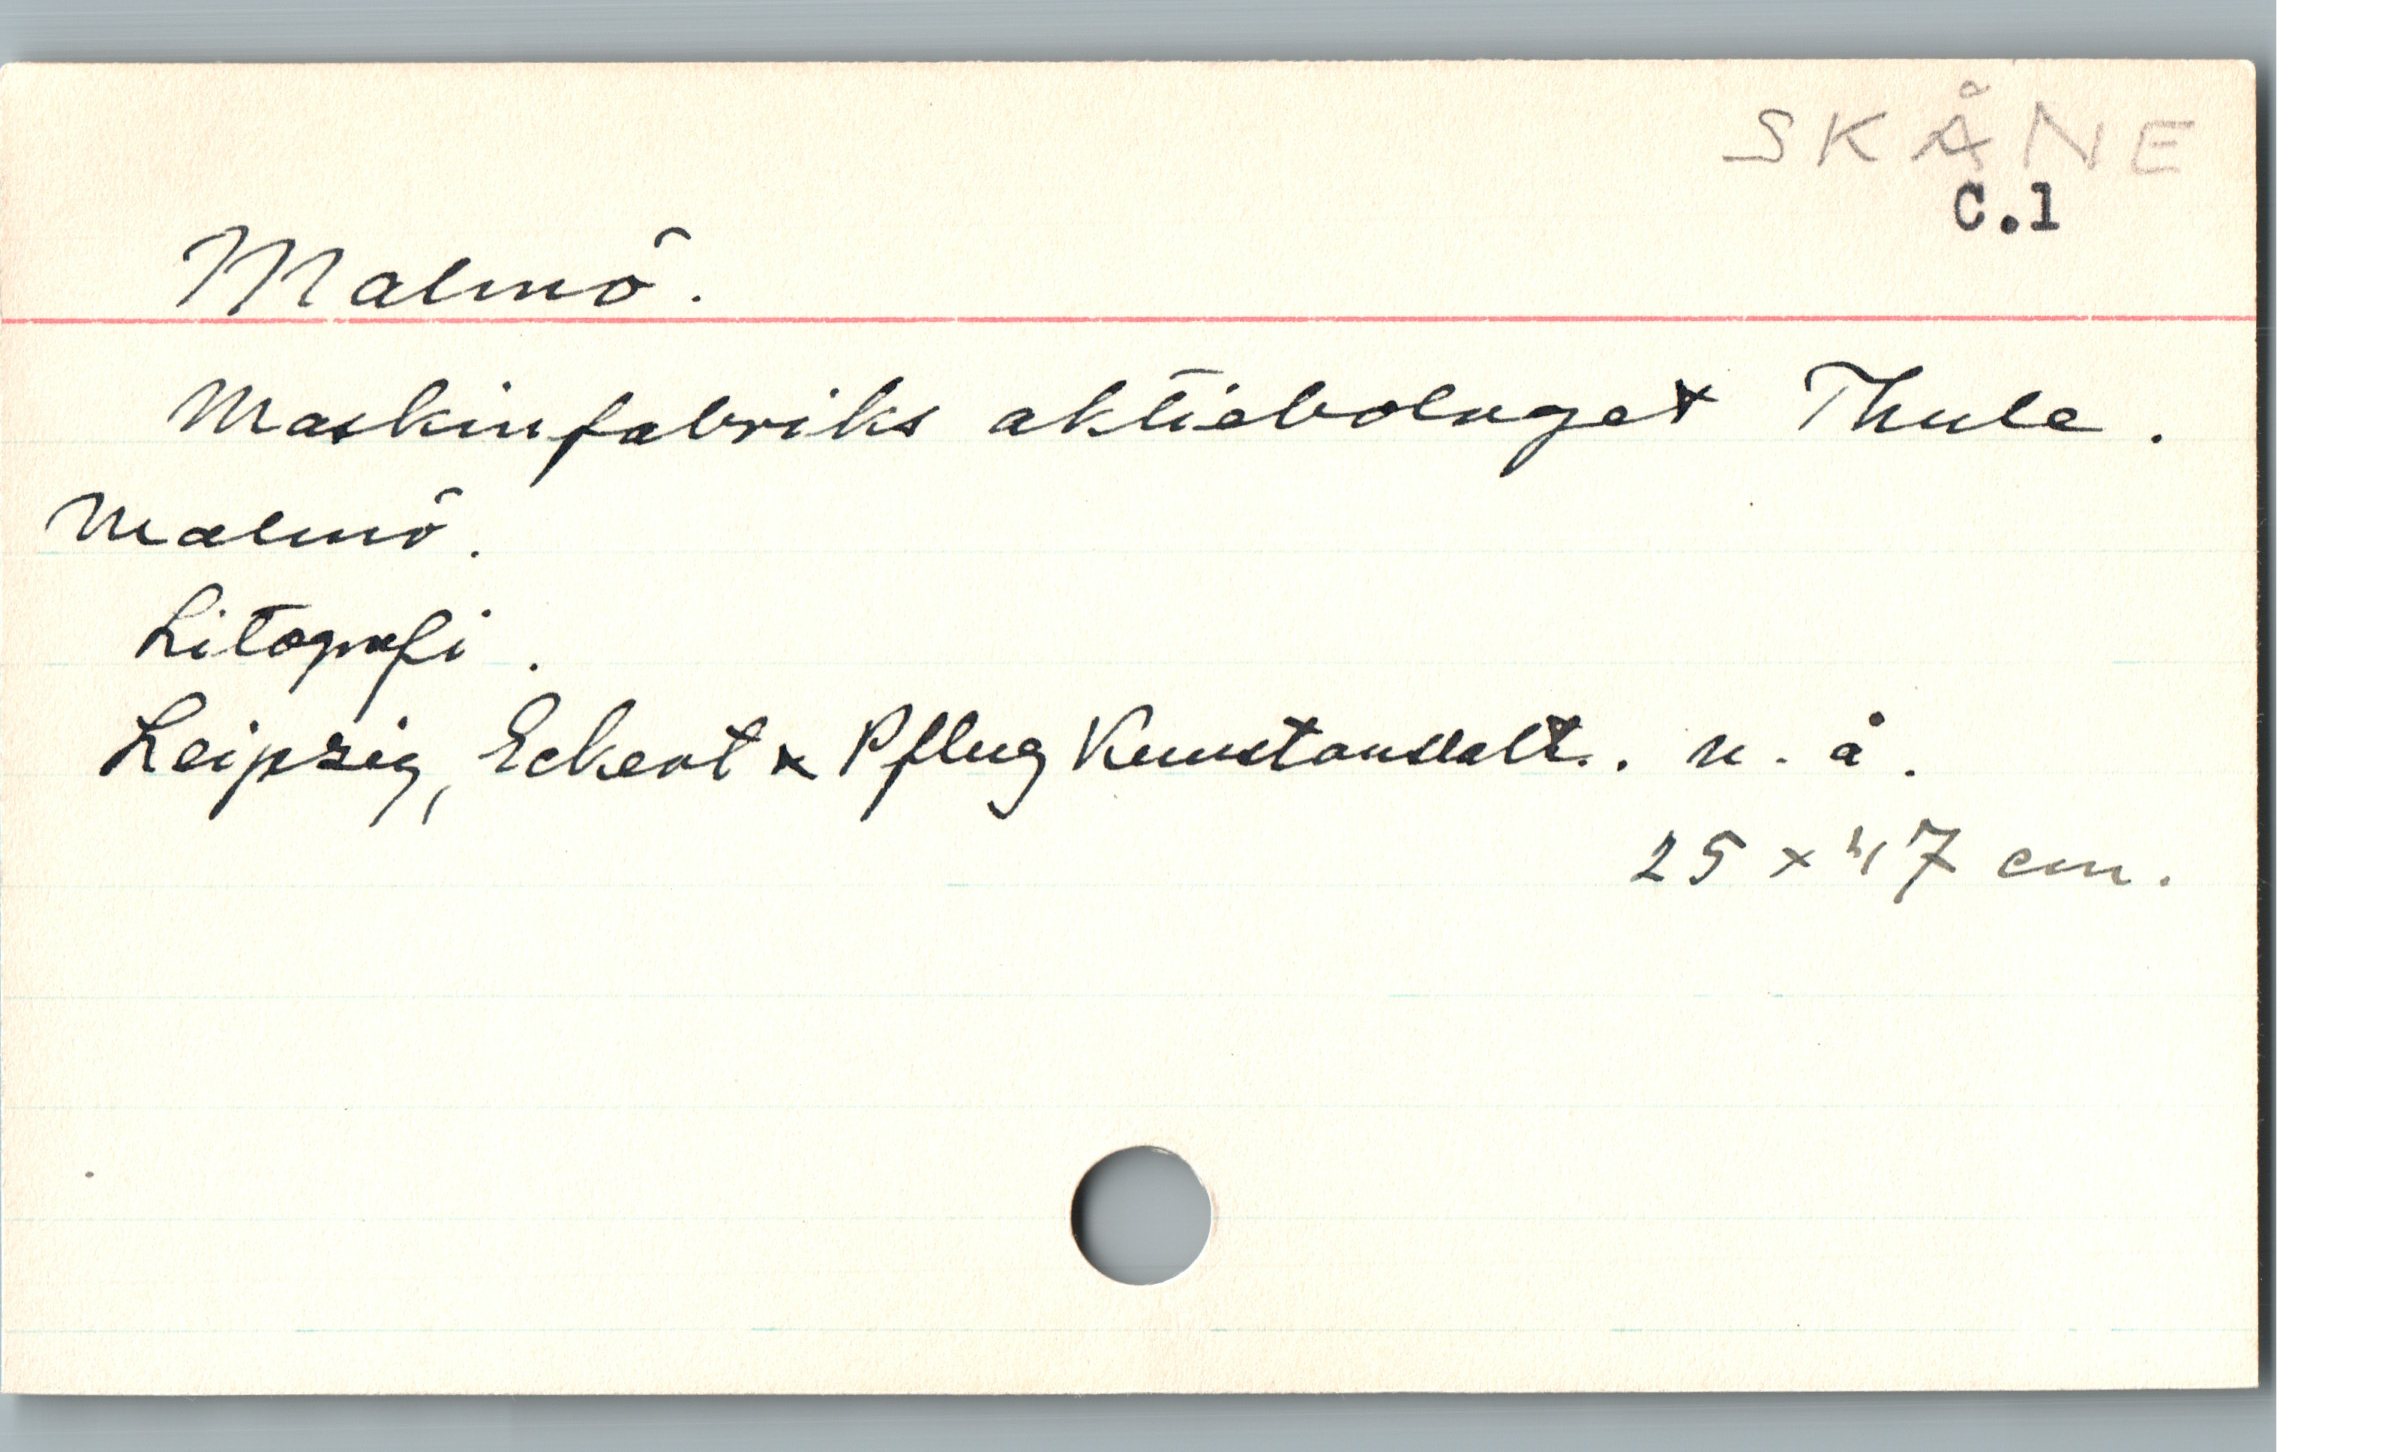 SKÅNE
C.1
Malmö.
Maskinfabriks aktiebolaget Thule.
Malmö.
Litografi.
Leipzig, Eckert & Pflug Kunstanstalt. u. å.
25 x 47 cm.